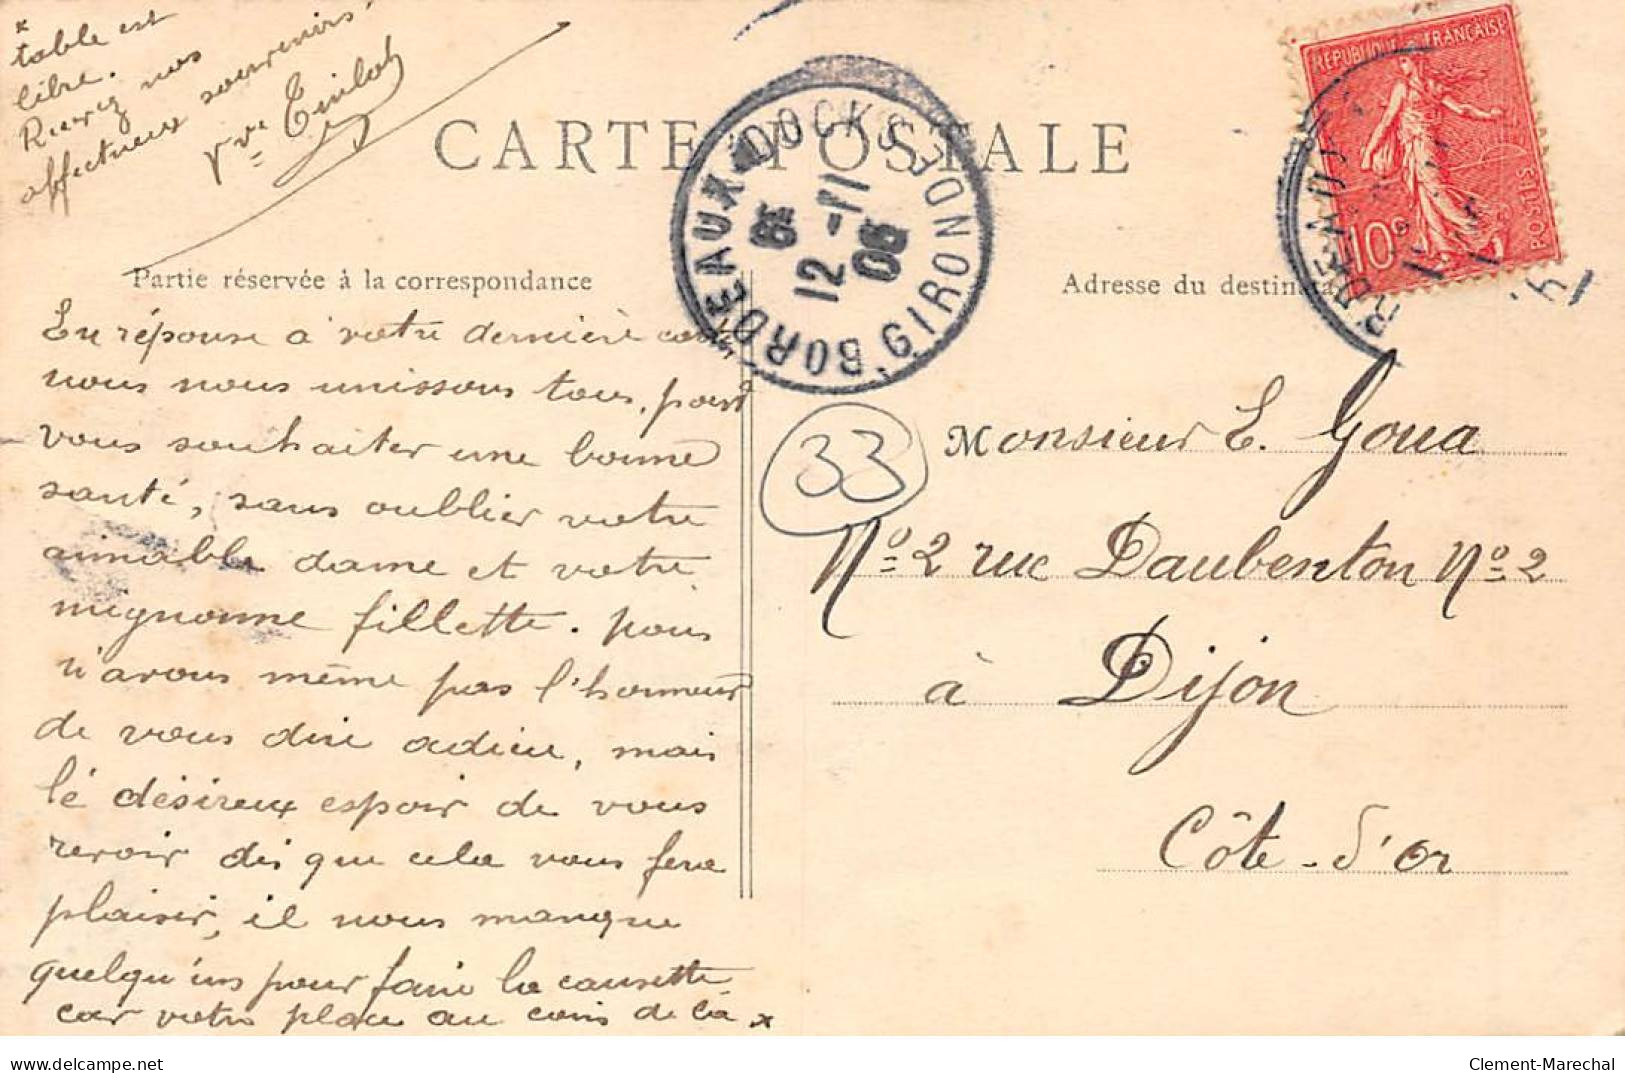 * table est
libre.
Recevez nos
affectueux souvenirs!
Vve
CARTE POSTALE
BORDEAUX DOCKS
GIRONDE
6E
12 -11
06
REPUBLIQUE FRANÇAISE
10c
POSTES
Partie réservée à la correspondance
Adresse du destinata
En réponse a votre dernière carte
nous nous unissons tous, pour
vous souhaiter une bonne
santé, sans oublier votre
aimable dame et votre
mignonne fillette. nous
n'avons même pas l'honneur
de vous dire adieu, mais
le désireux espoir de vous
revoir dès que cela vous fera
plaisir, il nous manque
quelqu'uns pour faire la causette
car votre place au coin de la *
33
Monsieur E. Goua
No 2 rue Daubenton No 2
à Dijon
Côte-d'Or
delcampe.net
Clement-Marechal